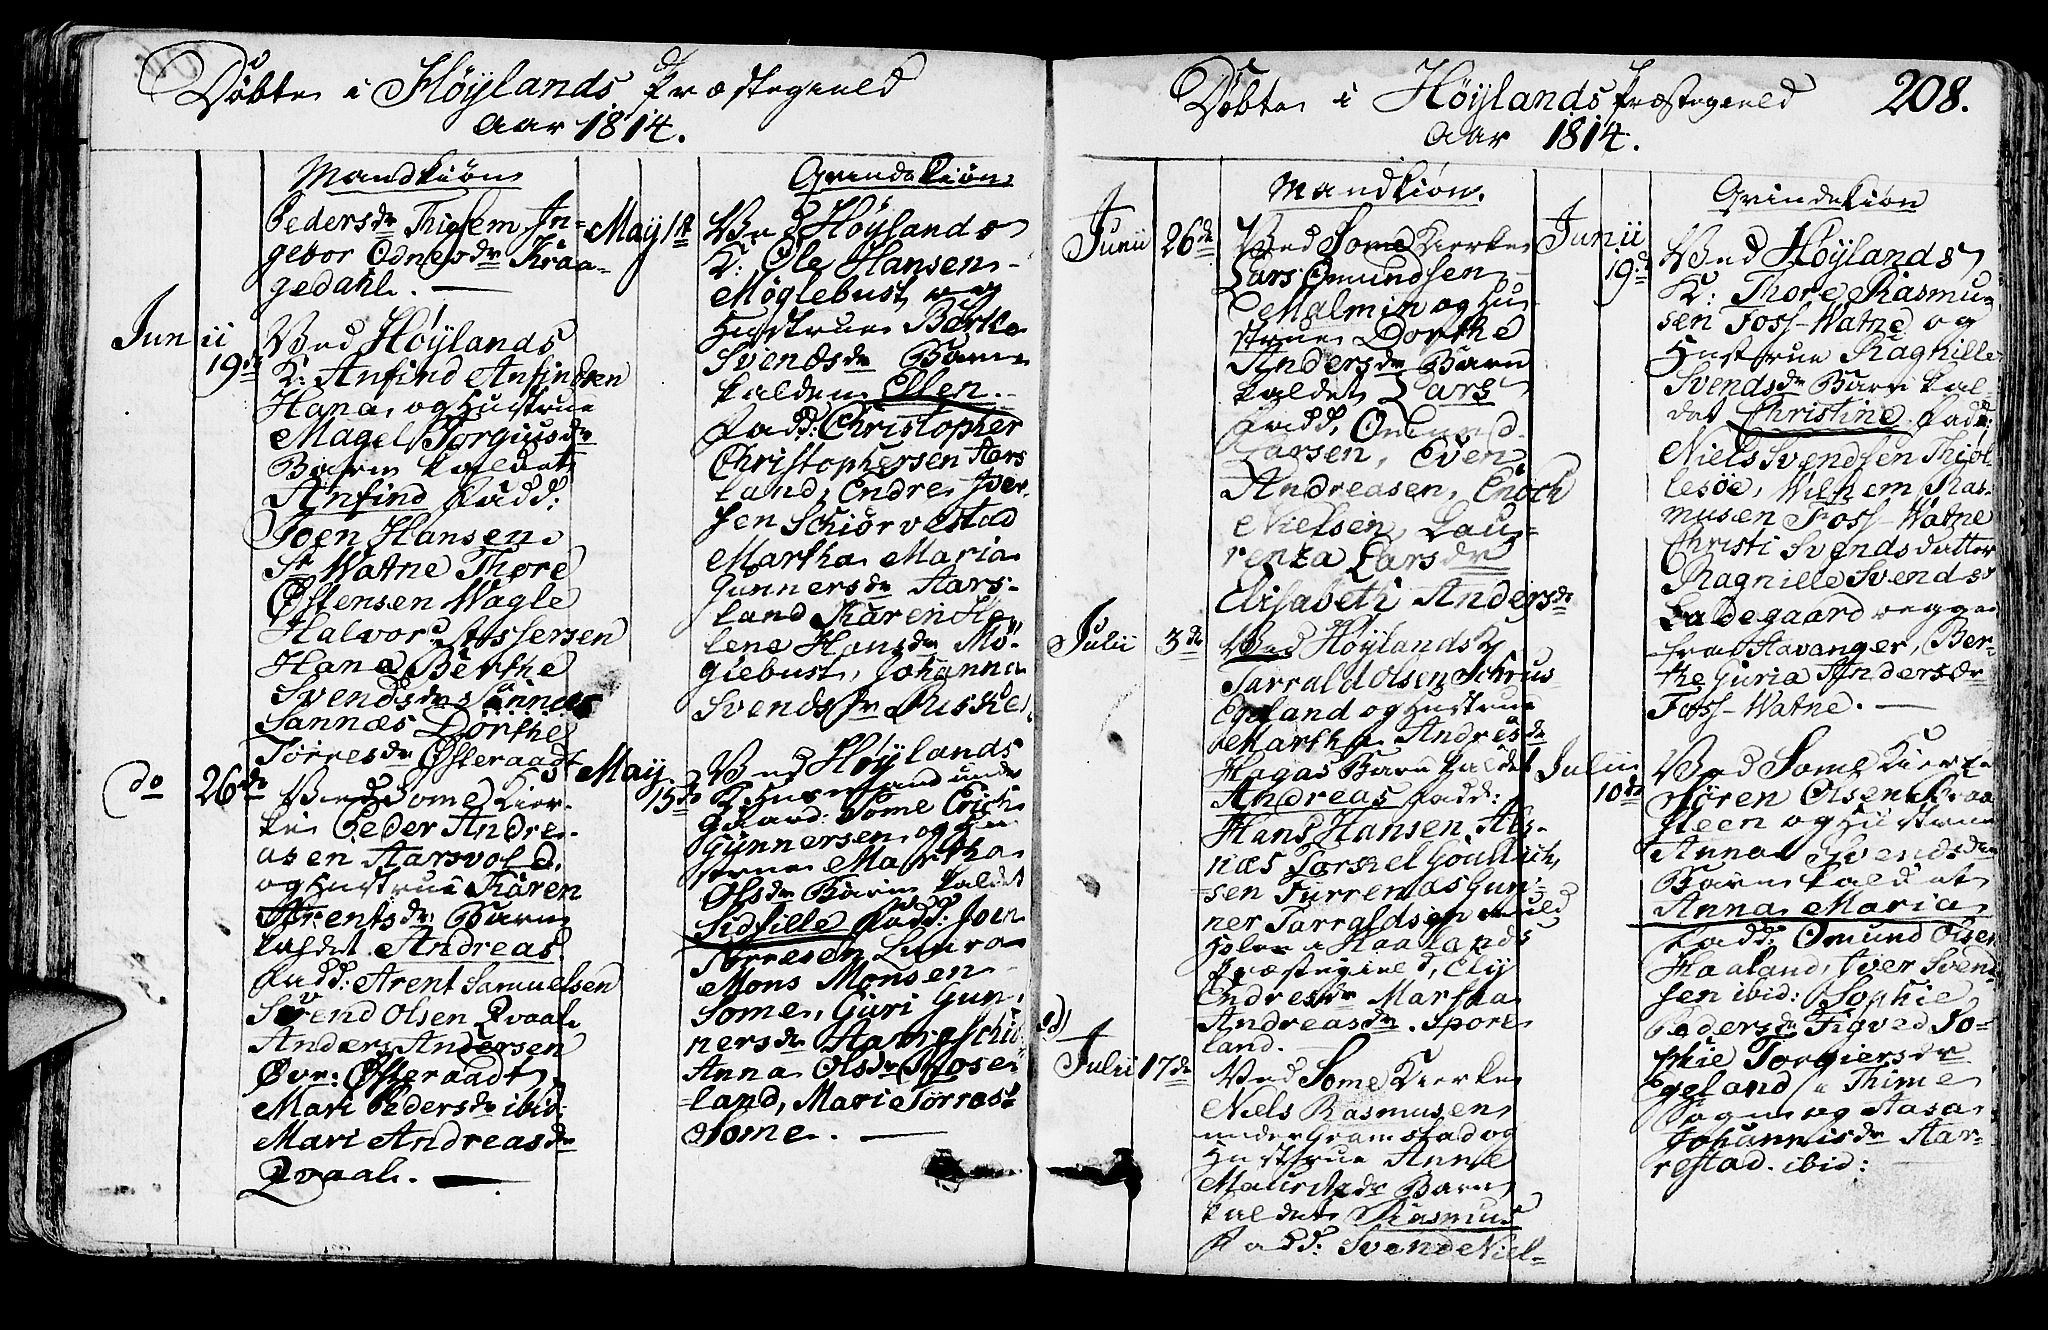 Döbte i Höÿlands Præstegield
Aar 1814.
Mandkiön
Pedersdr Thiosem In-
gebor Odnesdr Kraa-
gedahl.
Junii 19de
Ved Höÿlands
K: Anfind Anfindsen
Hana, og Hustrue
Magel Torgiusdr
Barn kaldet
Anfind Fadd:
Joen Hansen
St Watne Thore
Østensen Wagle
Halvor Assersen
Hana Berthe
Svendsdr Sannæs
Sannæs Dorthe
Torresdr Østeraadt
do 26de
Ved Some Kier-
ke Peder Andre-
asen Aarsvold,
og Hustrue Karen
Arentsdr Barn
kaldet Andreas
Fadd: Arent Samuelsen
Sörend Olsen Qvaal
Anders Andersen
Øvr: Østeraadt,
Mari Pedersdr ibid:
Mari Andreasdr
Qvaal.
Qvindekiön
May 1st
Ved Höÿlands
K: Ole Hansen
Möglebust og
Hustrue Berthe
Svendsdr Barn
kalden Ellen.
Fadd: Christopher
Christophersen Aars
land, Endre Iver-
sen Schiörvestad
Martha Maria
Gunnersdr Aars-
land Karen He-
lene Hansdr Mö-
glebust, Johanna
Svendsdr Riske
May 15de
Ved Höÿlands
K: Huusmand under
Gaard: Some Erich
Gunnersen og Hu-
strue Martha
Olsdr Barn kaldet
Sidsille Fadd: Joen
Torresen Lura
Mons Monsen
Some, Guri Gun-
nersdr
Anna Olsdr Rose-
land, Mari Torresdr
Some.
Döbte i Höÿlands Præstegield 208.
Aar 1814.
Mandkiön.
Junii 26de
Ved Some Kierke
Lars Omundsen
Malmin og Hu
strue Dorthe
Andersdr Barn
kaldet Lars
Fadd, Omund
Larsen, Even
Andreasen, Enoch
Nielsen, Lau-
renza Larsdr
Elisabeth Andersdr
Julii 3de
Ved Höÿlands K
Tarrald Olsen Schrus
Egeland og Hustrue
Martha Andresdr
Hagas Barn kaldet
Andreas Fadd:
Hans Hansen Als-
næs Torkel Goutich-
sen Furrenæs Gun-
ner Tarraldsen
i Haalands
Præstegield, Elÿ
Endresdr Martha
Andreasdr. Spore
land.
Julii 17de
Ved Some Kierke
Niels Rasmusen
under Gramstad og
Hustrue Anne
Mauritzdr Barn
kaldet Rasmus
Fadd: Svend Niel-
Qvindekiön
Junii 19de
Ved Höÿlands
K: Thore Rasmu-
sen Foss-Watne og
Hustrue Ragnille
Svendsdr Barn kal-
det Christine Fadd:
Niels Svendsen Thiöt
lesöe, Wilhem Ras-
musen Foss-Watne
Christi Svendsdatter
Ragnille Svendsdr
Ladegaard begge
fra Stavanger, Ber-
the Guria Andersdr
Foss-Watne.
Julii 10de
Ved Some Kierke
Sören Olsen Braa
steen og Hustrue
Anna Svendsdr
Barn kaldet
Anna Maria
Fadd: Omund Olsen
Haaland, Iver Svend
sen ibid: Sophie
Pedersdr Figved So-
phie Torgiersdr
Egeland i Thime
Sogn og Aasa
Johannisdr Aar-
restad. ibid: